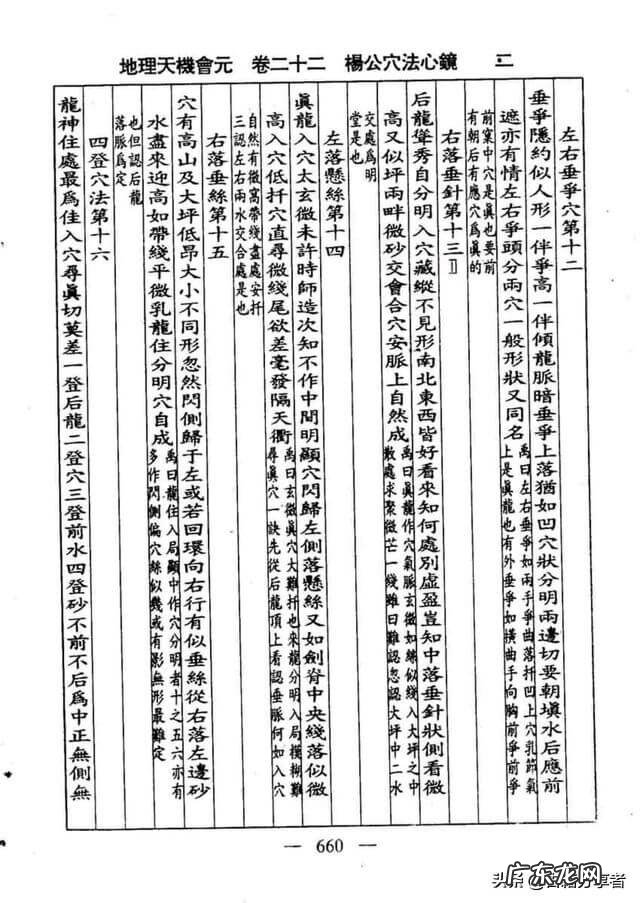 地理天機會元　卷二十二　楊公穴法心鏡　二
左右垂爭穴第十二
垂爭隱約似人形一伴爭高一伴傾龍脈暗垂爭上落猶如凹穴狀分明兩邊切要朝塡水后應前
遮亦有情左右爭頭分兩穴一般形狀又同名禹曰左右垂爭如兩手爭曲落扦凹上穴乳節氣上是眞龍也有外垂爭如橫曲手向胸前爭前爭
前案中穴是眞也要前有朝后有應穴爲眞的
右落垂針第十三
后龍聳秀自分明入穴藏縱不見形南北東西皆好看來知何處別虛盈豈知中落垂針狀側看微
高又似坪兩畔微砂交會合穴安脈上自然成禹曰眞龍作穴氣脈玄微如絲似綫入大坪之中數處求聚微芒一綫雖曰難認忽認大坪中二水
交處爲明堂是也
左落懸絲第十四
眞龍入穴太玄微未許時師造次知不作中間明顯穴閃歸左側落懸絲又如劍脊中央綫落似微
高入穴低扦穴直尋微綫尾欲差毫發隔天衢禹曰玄微眞穴大難扦也來龍分明入局模糊難尋眞穴一訣先從后龍頂上看認垂脈何如入穴
自然有微窩帶綫盡處安扦三認左右兩水交合處是也
右落垂絲第十五
穴有高山及大坪低昂大小不同形忽然閃側歸于左或若回環向右行有似垂絲從右落左邊砂
水盡來迎高如帶綫平微乳龍住分明穴自成禹曰龍住入局顯中作穴分明者十之五六亦有多作閃側偏穴絲似幾或有影無形最難定
也但認后龍落脈爲定
四登穴法第十六
龍神住處最爲佳入穴尋眞切莫差一登后龍二登穴三登前水四登砂不前不后爲中正無側無
— 660 —
广东龙网
头条
享者